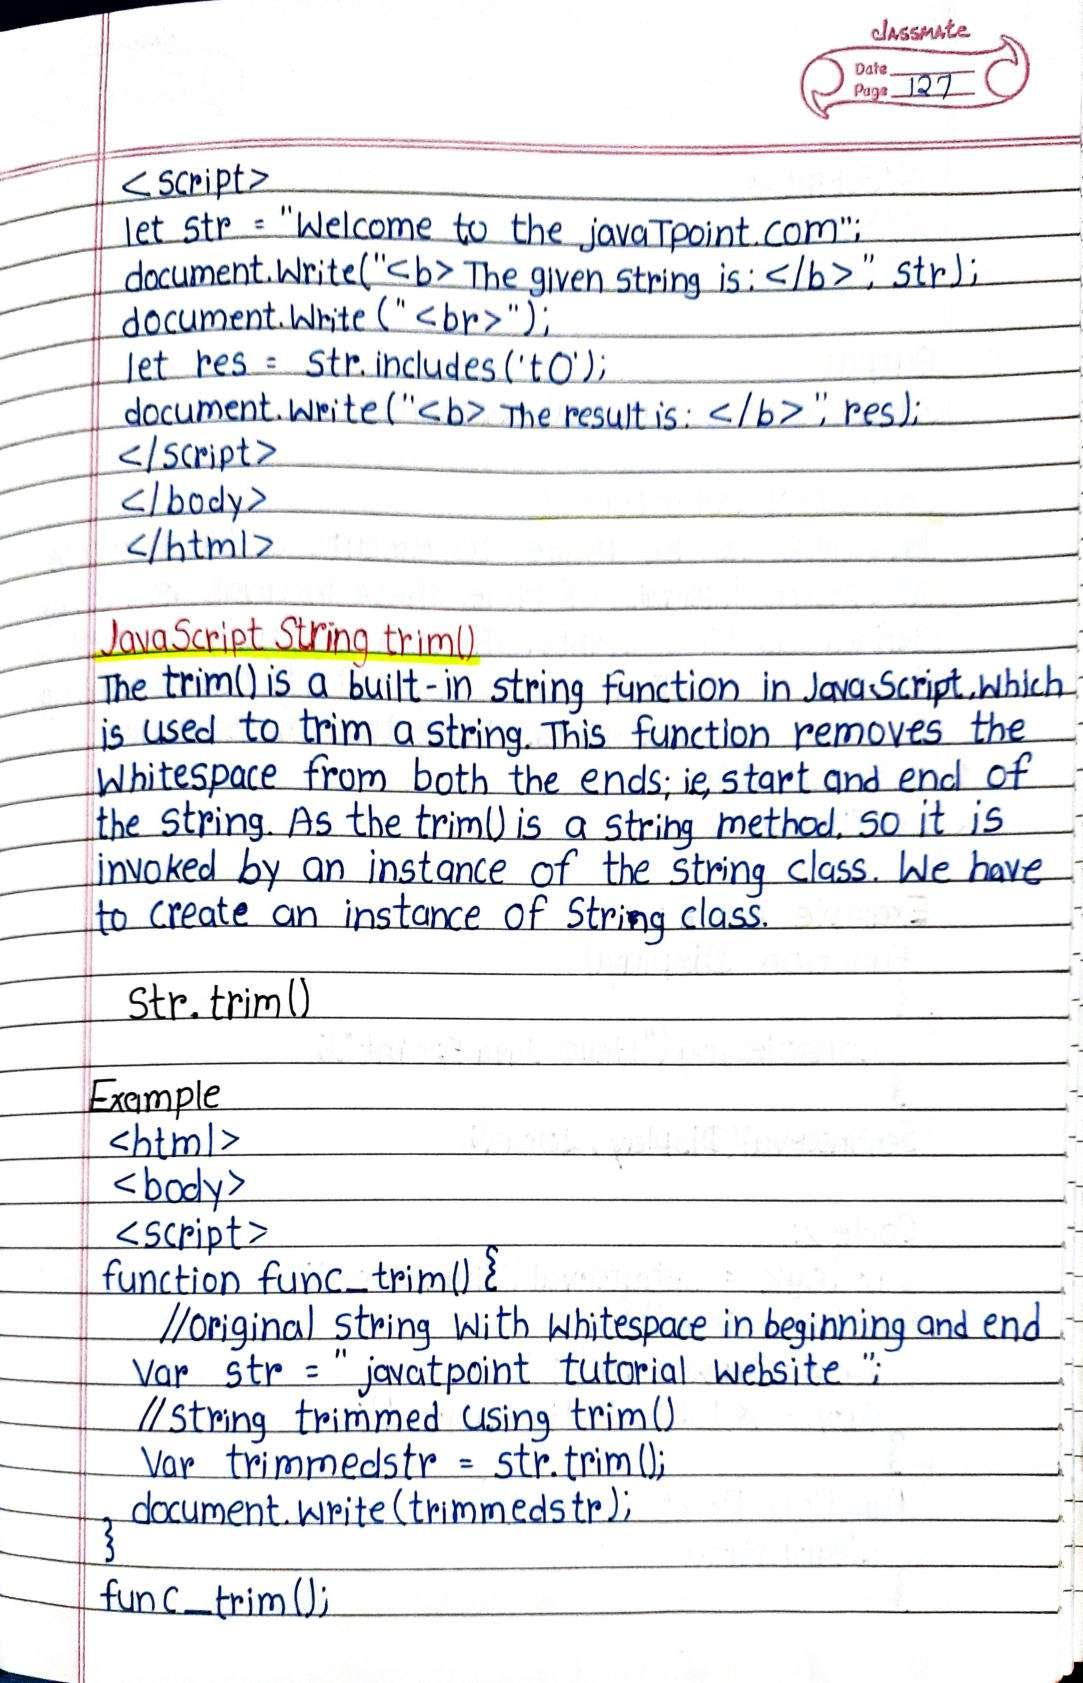 classmate
Date
Page 127
<script>
let str = "Welcome to the javaTpoint.com";
document.Write("<b> The given string is: </b>", str);
document.Write ("<br>");
let res = Str.includes('tO');
document.Write("<b> The result is: </b>", res);
</script>
</body>
</html>
JavaScript String trim()
The trim() is a built-in string function in JavaScript, which
is used to trim a string. This function removes the
Whitespace from both the ends; ie, start and end of
the string. As the trim() is a string method, so it is
invoked by an instance of the string class. We have
to create an instance of String class.
Str.trim()
Example
<html>
<body>
<script>
function func_trim() {
//original string with whitespace in beginning and end
Var str = " javatpoint tutorial website ";
//string trimmed using trim()
Var trimmedstr = str.trim();
document.Write(trimmedstr);
}
func_trim();